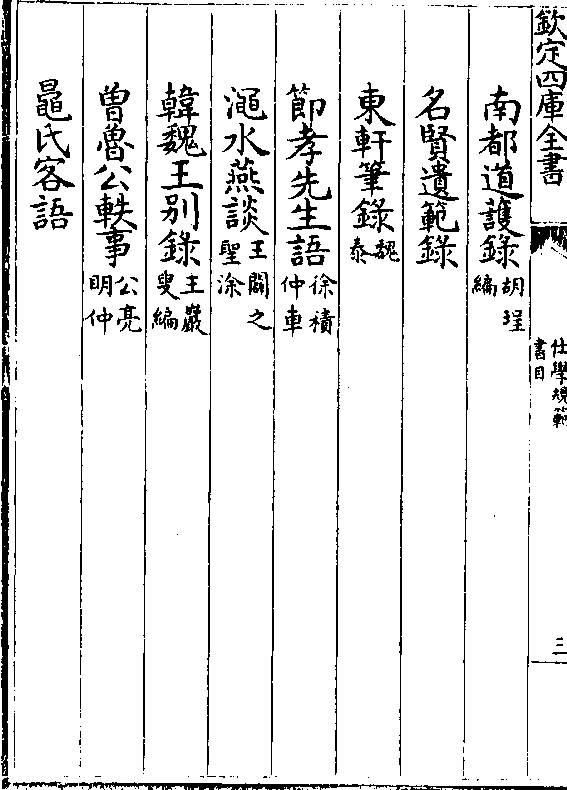 欽定四庫全書
仕學規範
書目
三
南都道護錄 胡珵編
名賢遺範錄
東軒筆錄 魏泰
節孝先生語 徐積仲車
澠水燕談 王闢之聖涂
韓魏王别錄 王巖叟編
曾魯公軼事 公亮明仲
鼂氏客語